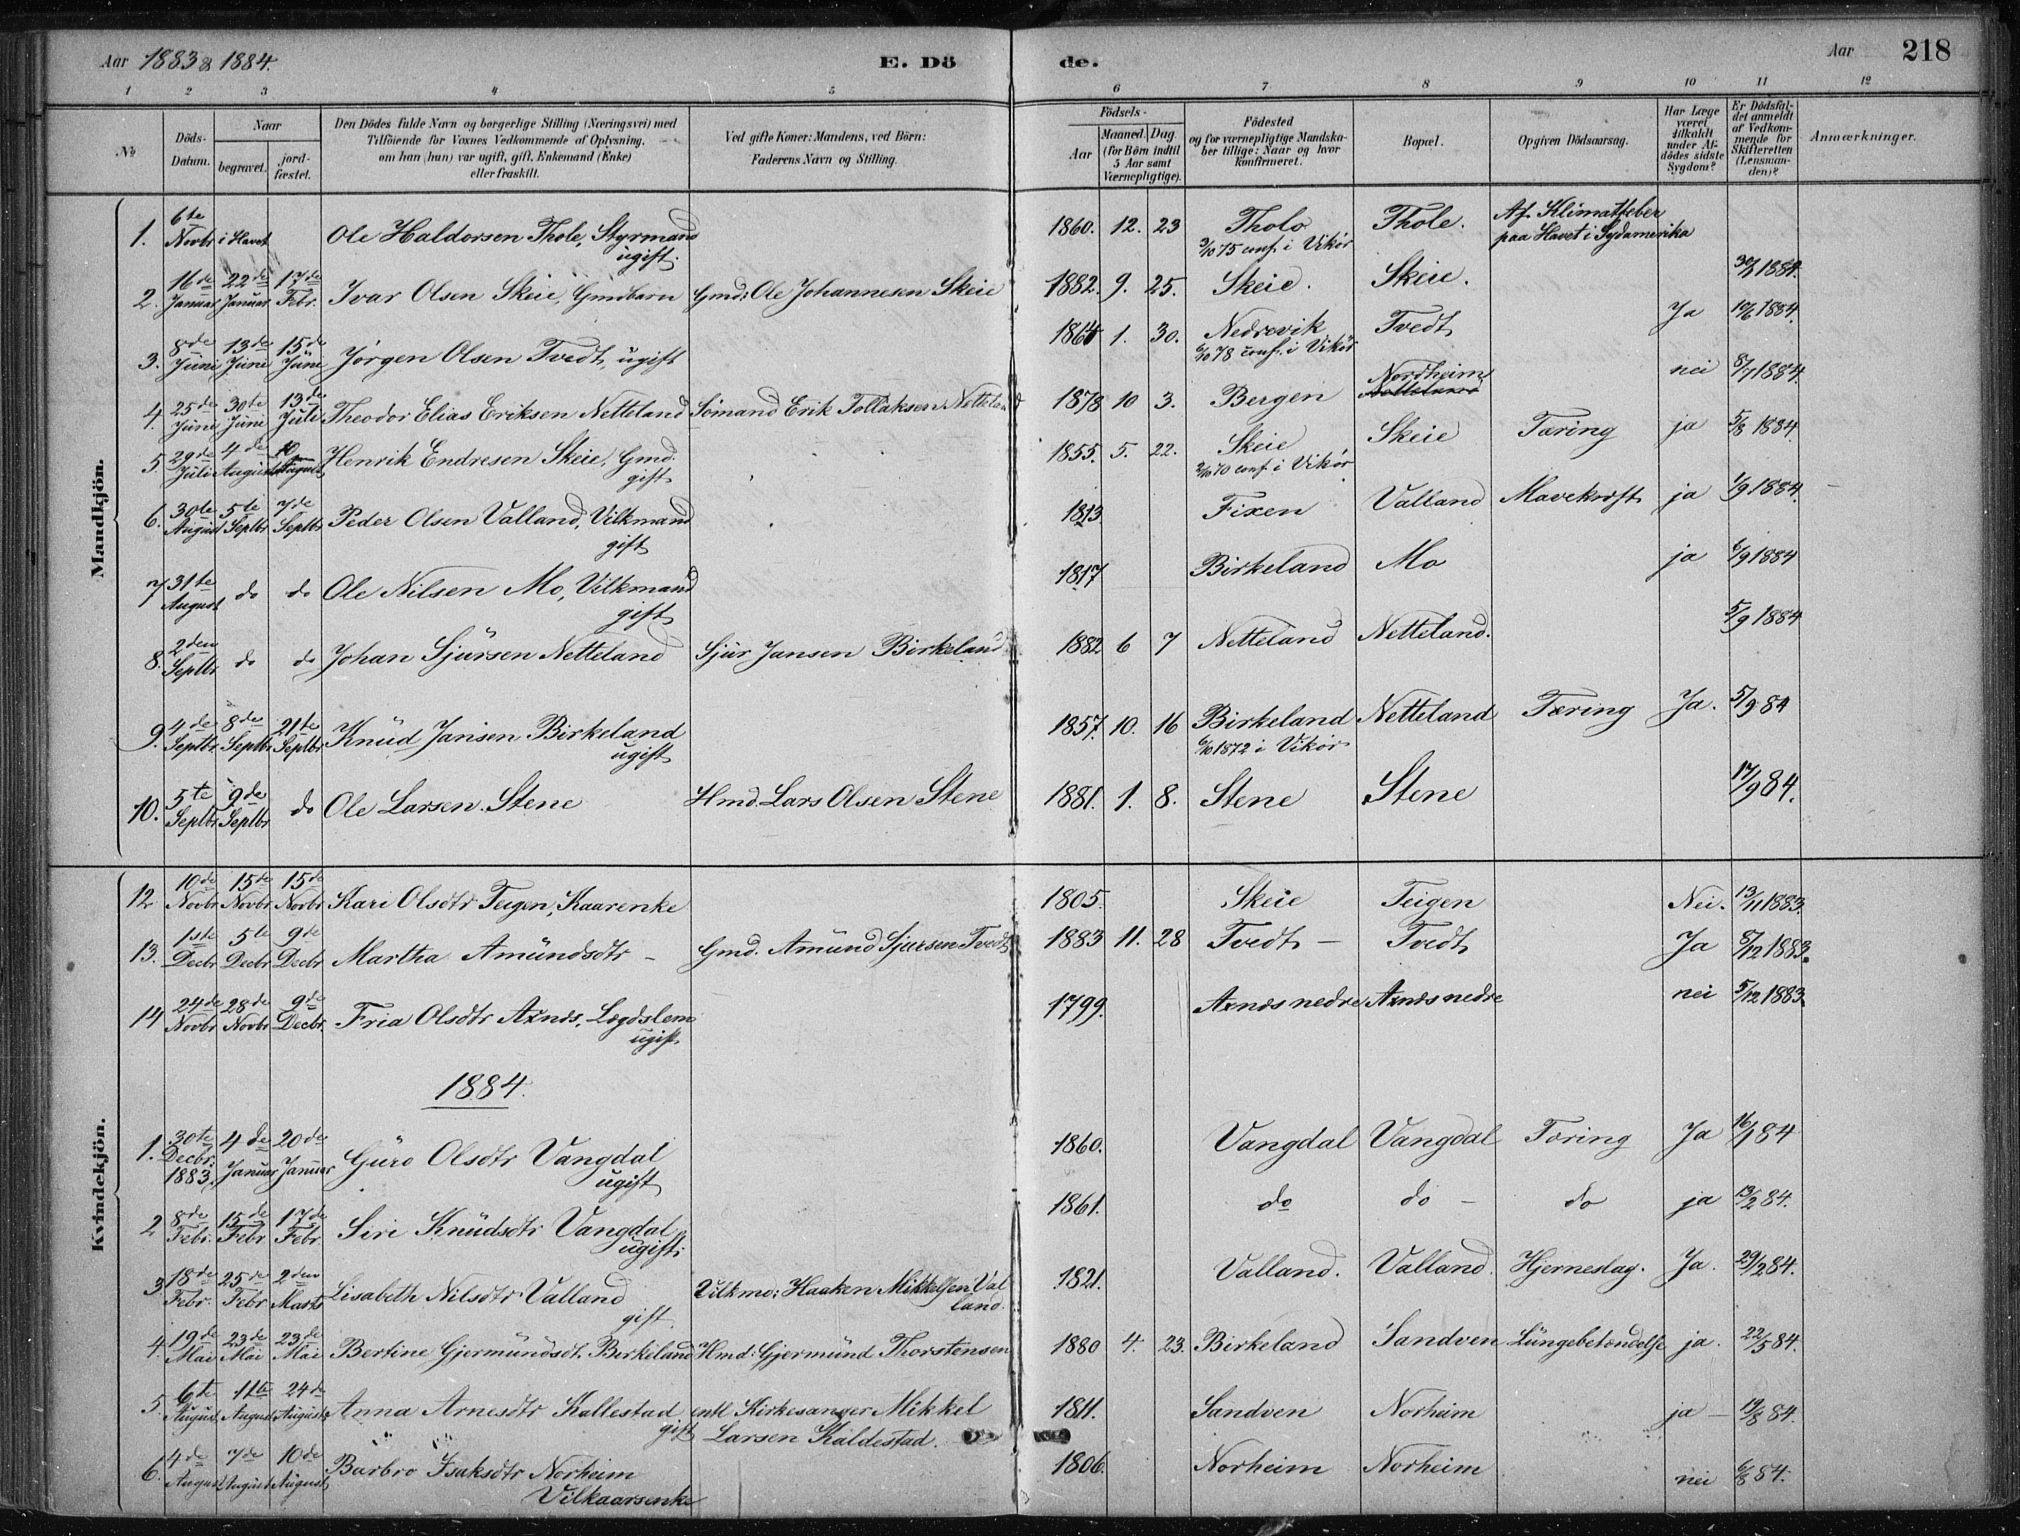 Aar 1883 & 1884.
E. Dö de.
Aar 218
1 2 3 4 5 6 7 8 9 10 11 12
No
Döds-Datum.
Naar begravet. jordfæstet.
Den Dödes fulde Navn og borgerlige Stilling (Næringsvei) med
Tilföiende for Voxnes Vedkommende af Oplysning,
om han (hun) var ugift, gift, Enkemand (Enke)
eller fraskilt.
Ved gifte Koner: Mandens, ved Börn:
Faderens Navn og Stilling.
Födsels-
Aar
Maaned. Dag.
(for Börn indtil
5 Aar samt
Værnepligtige).
Födested
og for værnepligtige Mandska-
ber tillige: Naar og hvor
konfirmeret.
Bopæl.
Opgiven Dödsaarsag.
Har Læge
været
tilkaldt
under Af-
dödes sidste
Sygdom?
Er Dödsfal-
det anmeldt
af Vedkom-
mende for
Skifteretten
(Lensman-
den)?
Anmærkninger.
Mandkjön.
1. 6te Novbr i Havet Ole Haldorsen Thole, Styrmand ugift. 1860. 12. 23 Tholo 3/10 75 conf. i Vikør Thole. Af Klimatfeber paa Havet i Sydamerika
2. 16de Januar 22de Januar 17de Febr. Ivar Olsen Skeie, Gmdbarn Gmd: Ole Johannesen Skeie 1882. 9. 25. Skeie. Skeie. 1884.
3. 8de Juni 13de Juni 15de Juni Jørgen Olsen Tvedt, ugift 1864 1. 30. Nedrevik 6/10 78 conf. i Vikør Tvedt Ja 10/6 1884.
4. 25de Juni 30te Juni 13de Juli Theodor Elias Eriksen Netteland Sømand Erik Tollaksen Netteland 1878 10 3. Bergen Nordheim Netteland nei 8/7 1884.
5 29de Juli 4de August 10 August Henrik Endresen Skeie, Gmd. gift 1855. 5. 22. Skeie 2/10 70 conf. i Vikør Skeie Tæring ja 5/8 1884.
6. 30te August 5te Septbr 7de Septbr Peder Olsen Valland, Vilkmand gift 1813 Fixen Valland Mavekræft ja 1/9 1884.
7 31te August do do Ole Nilsen Mo, Vilkmand gift 1817 Birkeland Mo ja 6/9 1884
8. 2den Septbr do do Johan Sjürsen Netteland Sjür Jansen Birkeland 1882 6 7 Netteland Netteland. 5/9 1884
9. 4de Septbr 8de Septbr 21te Septbr Knüd Jansen Birkeland ugift 1857. 10. 16 Birkeland 6/10 1872 i Vikør Netteland Tæring Ja. 5/9 84
10. 5te Septbr 9de Septbr do Ole Larsen Stene Hmd. Lars Olsen Stene 1881. 1. 8. Stene Stene 17/9 84.
Kvindekjön.
12 10de Novbr 15de Novbr 15de Novbr Kari Olsdtr Teigen, Kaarenke 1805. Skeie Teigen Nei. 13/11 1883.
13. 1ste Decbr 5te Decbr 9de Decbr Martha Amündsdtr - Gmd. Amünd Sjursen Tvedt 1883 11. 28 Tvedt - Tvedt Ja 8/12 1883.
14 24de Novbr 28de Novbr 9de Decbr. Fria Olsdtr Axnes, Lægdslem ugift. 1799. Axnes nedre Axnes nedre nei 5/12 1883.
1884.
1. 30te Decbr. 1883. 4de Januar 20de Januar Güro Olsdtr Vangdal ugift 1860. Vangdal Vangdal Tæring Ja 16/1 84
2 8de Febr. 15de Febr 17de Febr. Siri Knüdsdtr Vangdal ugift. 1861. do do - do ja 13/2 84.
3 18de Febr. 25de Febr 2den Marts Lisabeth Nilsdtr Valland gift. Vilkmd: Haaken Mikkelsen Valland. 1821. Valland. Valland. Hjerneslag. Ja. 29/2 84.
4. 19de Mai 23de Mai 23de Mai Bertine Gjermündsdt. Birkeland Hmd: Gjermünd Thorstensen 1880 4. 23. Birkeland Sandven Lüngebetændelse ja. 22/5 84.
5 6te August 11te August 24de August Anna Arnesdtr Kallestad gift entl Kirkesanger Mikkel Larsen Kaldestad. 1811. Sandven Norheim ja - 19/8 84.
6. 4de August 7de August 10de August Barbro Isaksdtr Norheim Vilkaarsenke 1806. Norheim Norheim nei 6/8 84.